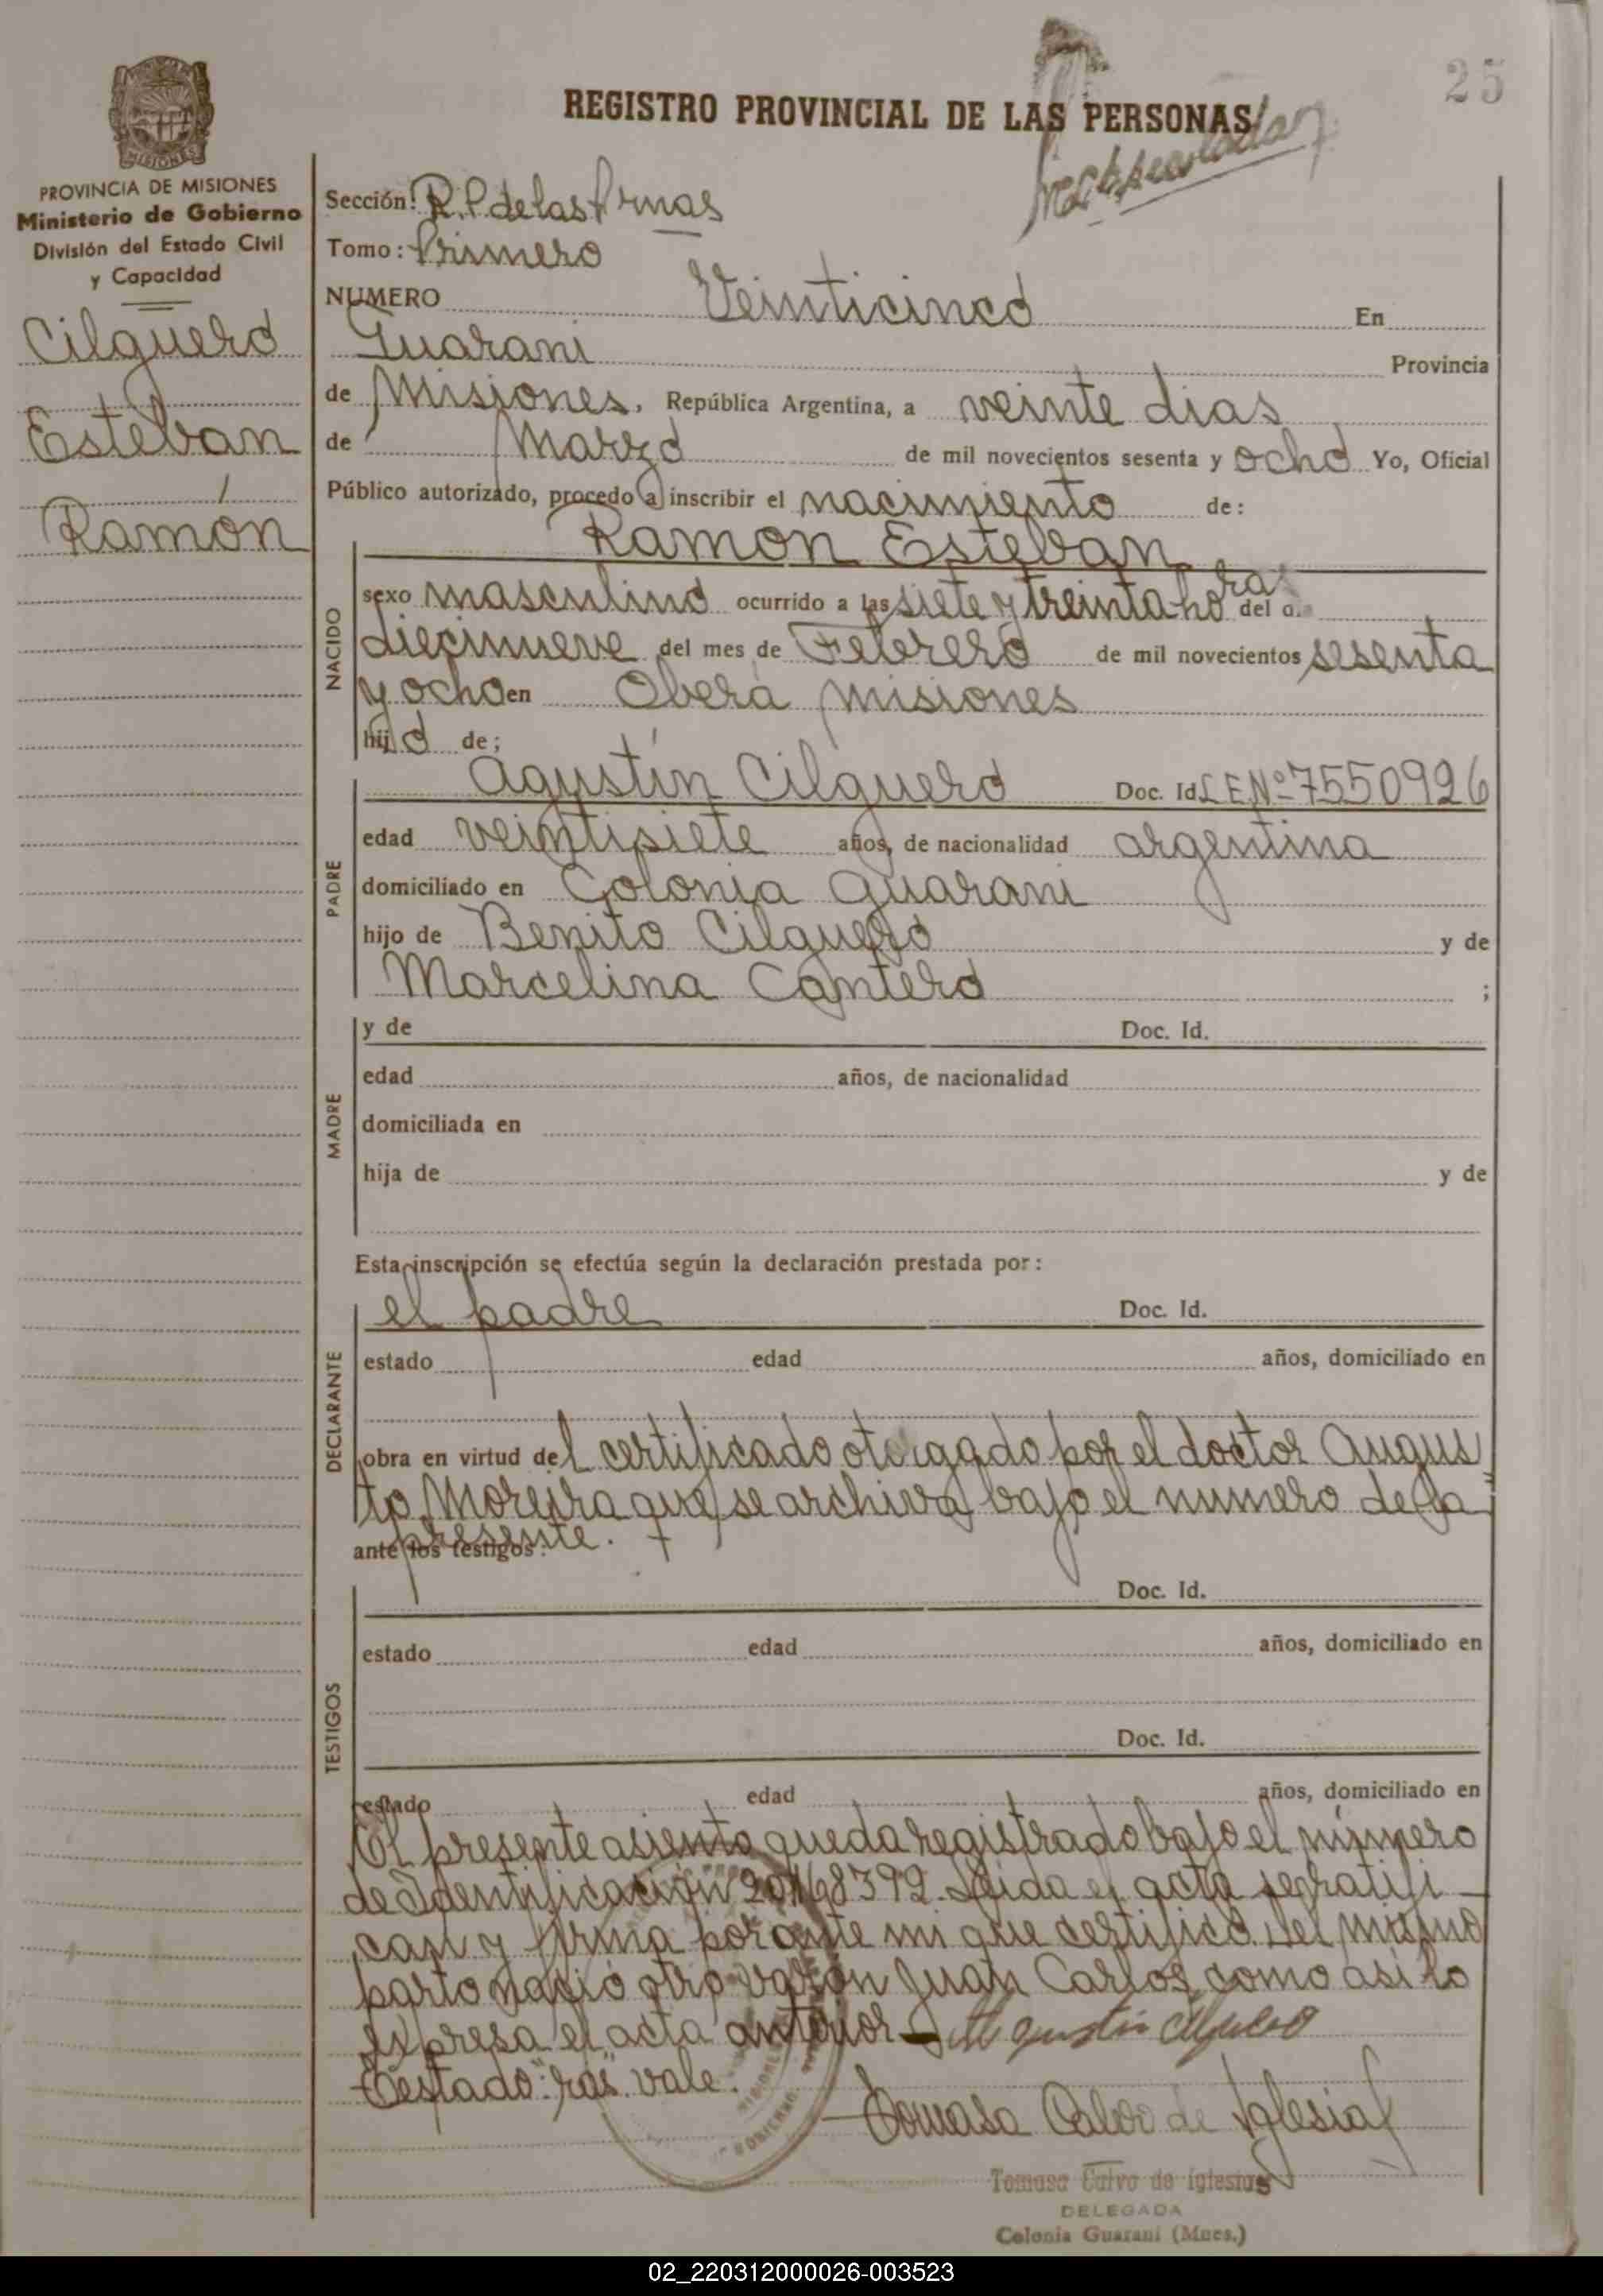 25
REGISTRO PROVINCIAL DE LAS PERSONAS
MISIONES
PROVINCIA DE MISIONES
Ministerio de Gobierno
División del Estado Civil
y Capacidad
Cilguero
Esteban
Ramón
Sección: R.P. de las Prnas
Tomo: Primero
NUMERO Veinticinco En
Guarani Provincia
de Misiones, República Argentina, a veinte dias
de Marzo de mil novecientos sesenta y ocho Yo, Oficial
Público autorizado, procedo a inscribir el nacimiento de:
Ramon Esteban
NACIDO
sexo masculino ocurrido a las siete y treinta horas del
diecinueve del mes de Febrero de mil novecientos sesenta
y ocho en Oberá Misiones
hijo de;
PADRE
Agustín Cilguero Doc. Id. L E Nº 7550926
edad veintisiete años, de nacionalidad argentina
domiciliado en Colonia Guarani
hijo de Benito Cilguero y de
Marcelina Cantero ;
MADRE
y de Doc. Id.
edad años, de nacionalidad
domiciliada en
hija de y de
Esta inscripción se efectúa según la declaración prestada por:
DECLARANTE
el padre Doc. Id.
estado edad años, domiciliado en
obra en virtud del certificado otorgado por el doctor Augus
to Moreira que se archiva bajo el numero de la
presente.
ante los testigos:
TESTIGOS
Doc. Id.
estado edad años, domiciliado en
Doc. Id.
estado edad años, domiciliado en
El presente asiento queda registrado bajo el número
de Identificación 20168392. Leida el acta se ratifi
can y firma por ante mi que certifico. Del mismo
parto nació otro varón Juan Carlos, como asi lo
expresa el acta anterior Agustin Cilguero
Testado: "ras" vale.
Tomasa Calvo de Iglesias
Tomasa Calvo de Iglesias
DELEGADA
Colonia Guarani (Mnes.)
02_220312000026-003523